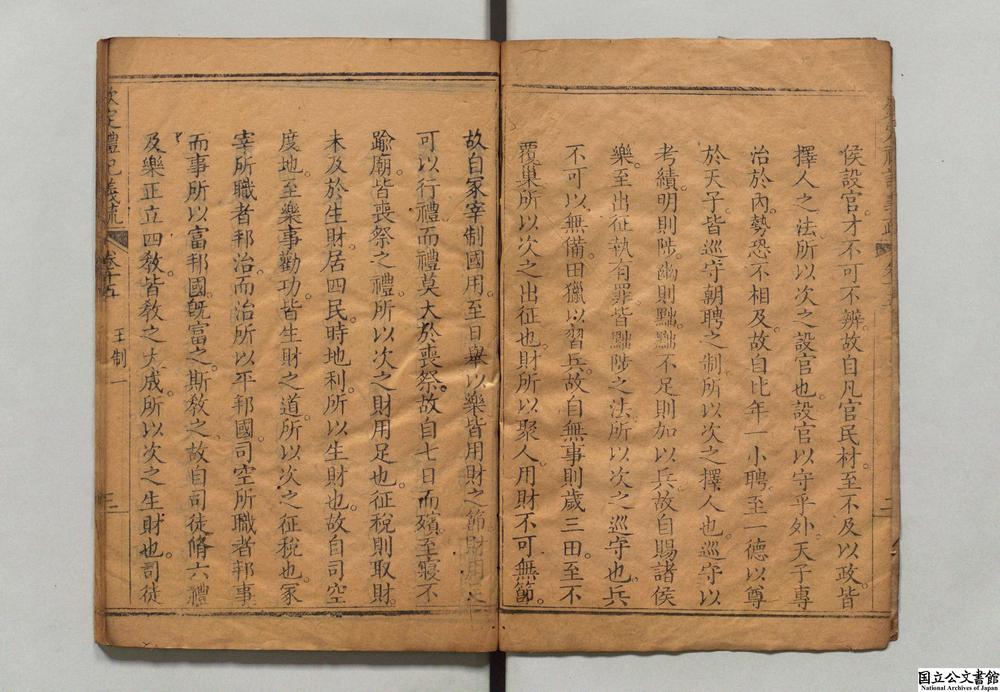 侯設官才不可不辨故自凡官民材至不及以政皆
擇人之法所以次之設官也設官以守乎外天子專
治於內勢恐不相及故自比年一小聘至一德以尊
於天子皆巡守朝聘之制所以次之擇人也巡守以
考績明則陟幽則黜黜不足則加以兵故自賜諸侯
樂至出征執有罪皆黜陟之法所以次之巡守也兵
不可以無備田獵以習兵故自無事則歲三田至不
覆巢所以次之出征也財所以聚人用財不可無節
故自冢宰制國用至日舉以樂皆用財之節財用足
可以行禮而禮莫大於喪祭故自七日而殯至寢不
踰廟皆喪祭之禮所以次之財用足也征稅則取財
未及於生財居四民時地利所以生財也故自司空
度地至樂事勸功皆生財之道所以次之征稅也冢
宰所職者邦治而治所以平邦國司空所職者邦事
而事所以富邦國既富之斯敎之故自司徒脩六禮
及樂正立四敎皆敎之大成所以次之生財也司徒
欽定禮記義疏
卷十五
王制一
三
二
国立公文書館
National Archives of Japan